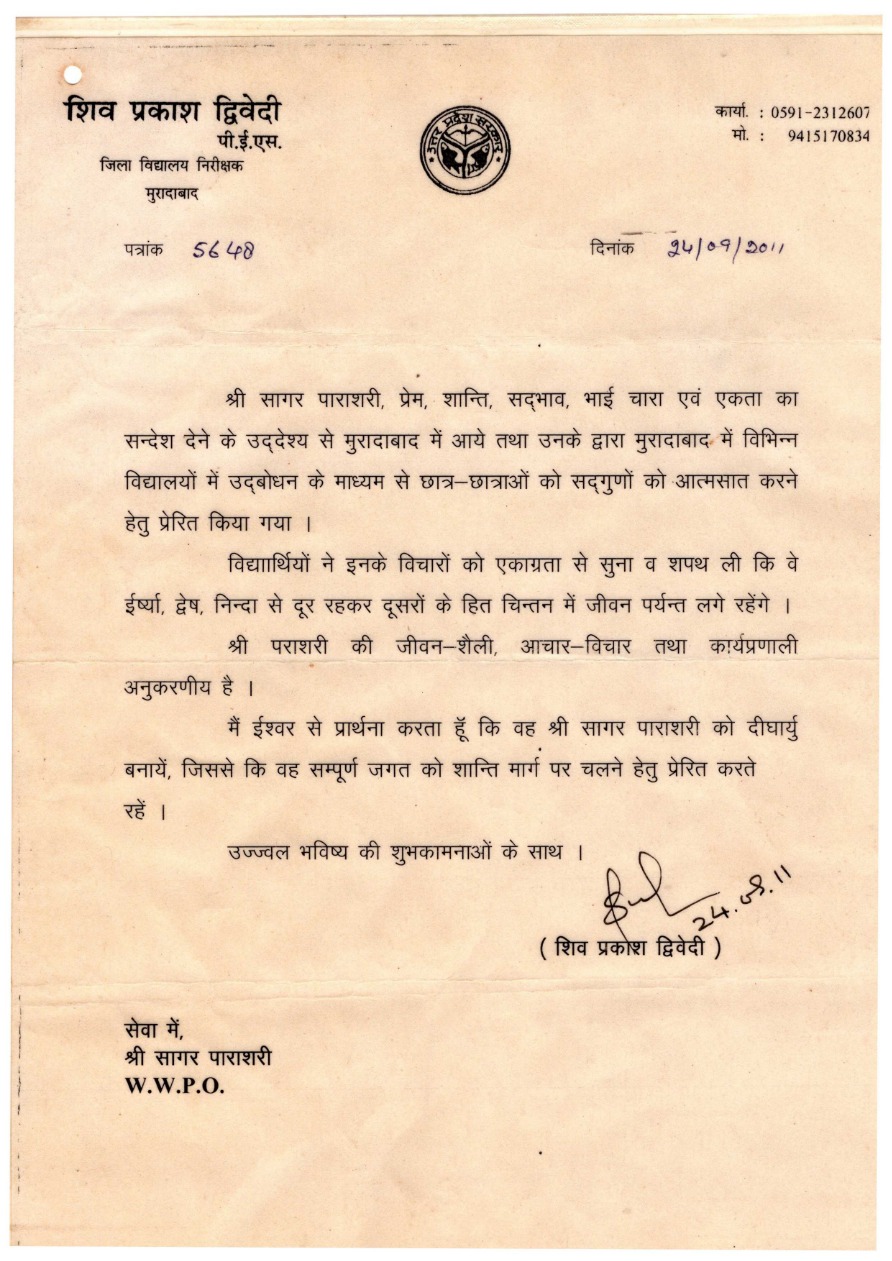 शिव प्रकाश द्विवेदी
पी.ई.एस.
जिला विद्यालय निरीक्षक
मुरादाबाद
उत्तर प्रदेश सरकार
कार्या. : 0591-2312607
मो. : 9415170834
पत्रांक 5648
दिनांक 24/09/2011
श्री सागर पाराशरी, प्रेम, शान्ति, सद्‌भाव, भाई चारा एवं एकता का
सन्देश देने के उद्‌देश्य से मुरादाबाद में आये तथा उनके द्वारा मुरादाबाद में विभिन्न
विद्यालयों में उद्‌बोधन के माध्यम से छात्र–छात्राओं को सद्‌गुणों को आत्मसात करने
हेतु प्रेरित किया गया ।
विद्याार्थियों ने इनके विचारों को एकाग्रता से सुना व शपथ ली कि वे
ईर्ष्या, द्वेष, निन्दा से दूर रहकर दूसरों के हित चिन्तन में जीवन पर्यन्त लगे रहेंगे ।
श्री पराशरी की जीवन–शैली, आचार–विचार तथा कार्यप्रणाली
अनुकरणीय है ।
मैं ईश्वर से प्रार्थना करता हूँ कि वह श्री सागर पाराशरी को दीघार्यु
बनायें, जिससे कि वह सम्पूर्ण जगत को शान्ति मार्ग पर चलने हेतु प्रेरित करते
रहें ।
उज्ज्वल भविष्य की शुभकामनाओं के साथ ।
24.09.11
( शिव प्रकाश द्विवेदी )
सेवा में,
श्री सागर पाराशरी
W.W.P.O.